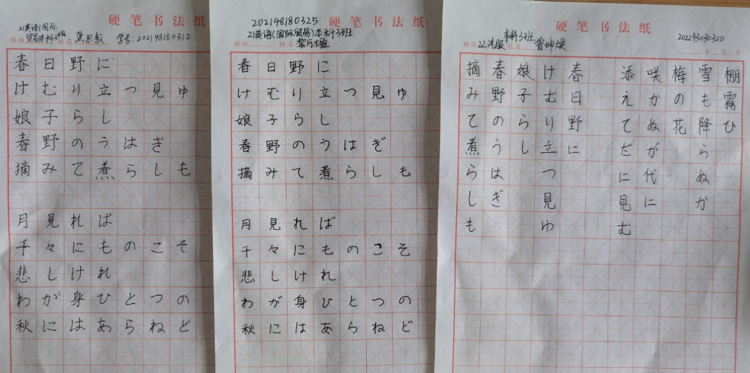 硬笔书法纸
21英语(国际
学号:202148180312
春日野に
けむり立つ見ゆ
娘子らし
春野のうはぎ
摘みて煮らしも
月見れば
千々にものこそ
悲しけれ
わが身ひとつの
秋にはあらねど
硬笔书法纸
202148180325
21英语(国际贸易)本科3班
春日野に
けむり立つ見ゆ
娘子らし
春野のうはぎ
摘みて煮らしも
月見れば
千々にものこそ
悲しけれ
わが身ひとつの
秋にはあらねど
硬笔书法纸
本科3班
棚霧ひ
雪も降らぬか
梅の花
咲かぬが代に
添えてだに見む
春日野に
けむり立つ見ゆ
娘子らし
春野のうはぎ
摘みて煮らしも